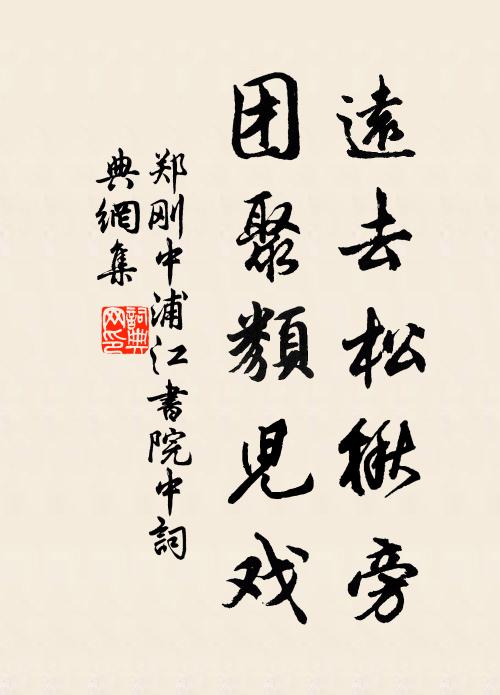 遠去松楸旁
团聚類児戏
郑刚中浦江書院中詞
典網集
詞典网印